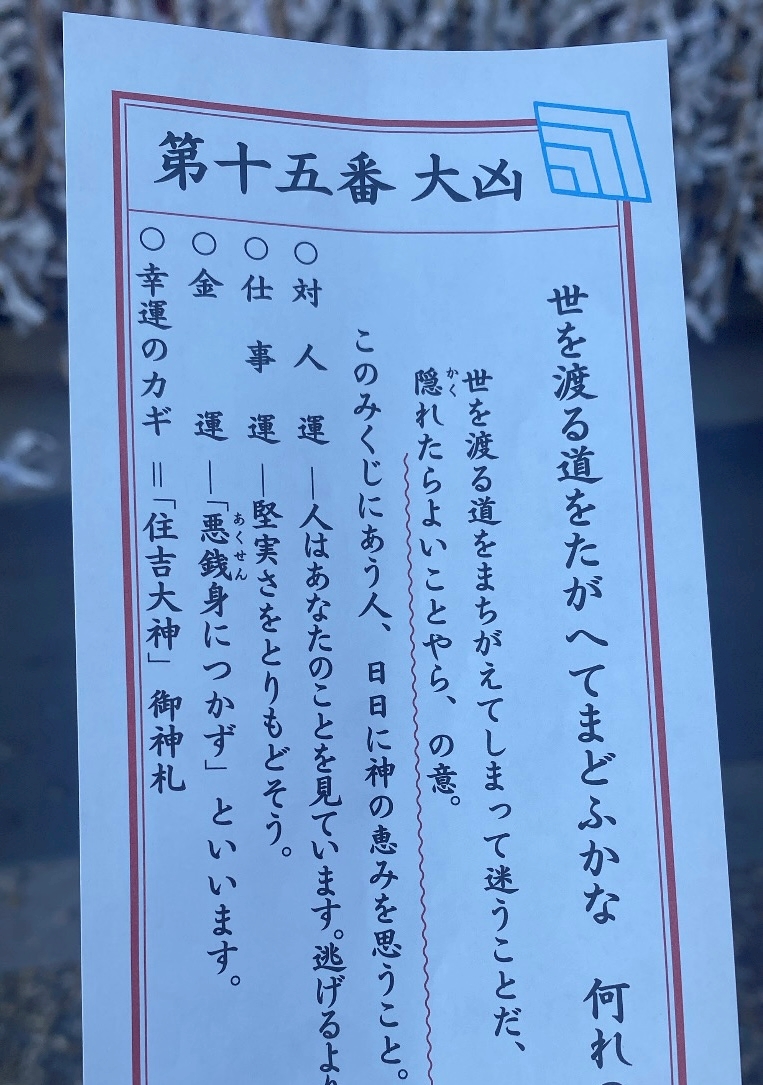 第十五番 大凶
世を渡る道をたがへてまどふかな 何れ
世を渡る道をまちがえてしまって迷うことだ、
隠れたらよいことやら、の意。
かく
このみくじにあう人、日日に神の恵みを思うこと。
○対人運―人はあなたのことを見ています。逃げるより
○仕事運―堅実さをとりもどそう。
○金運―「悪銭身につかず」といいます。
あくせん
○幸運のカギ=「住吉大神」御神札